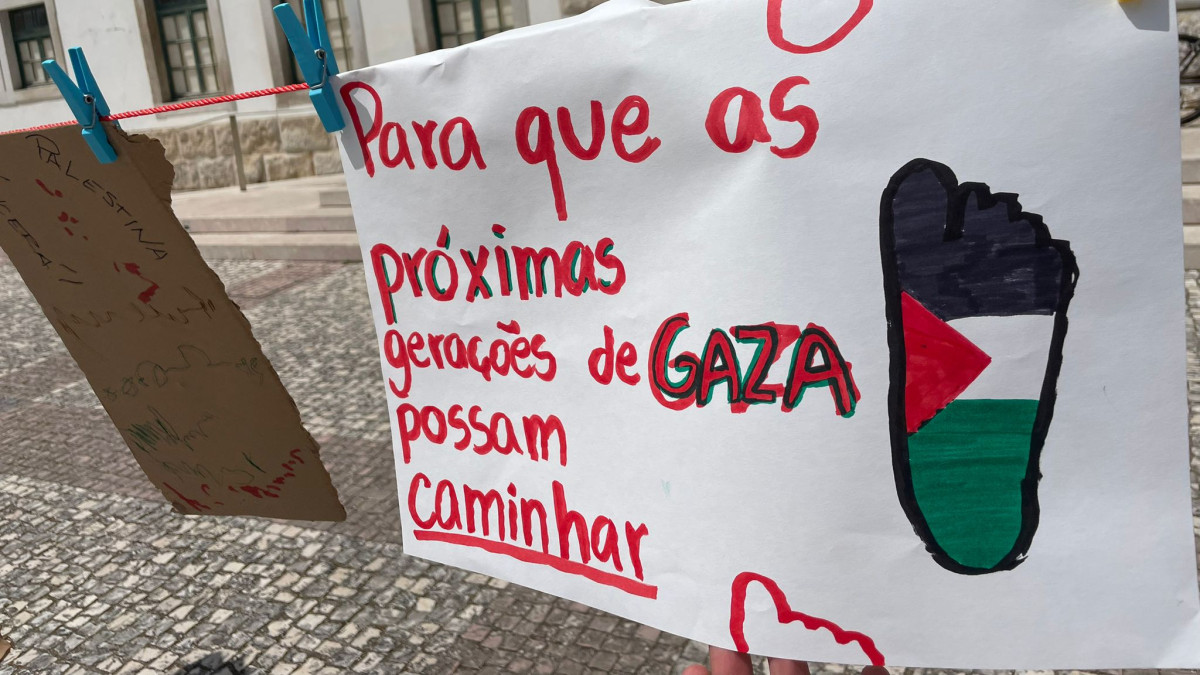 Para que as
próximas
gerações de GAZA
possam
caminhar
PALESTINA